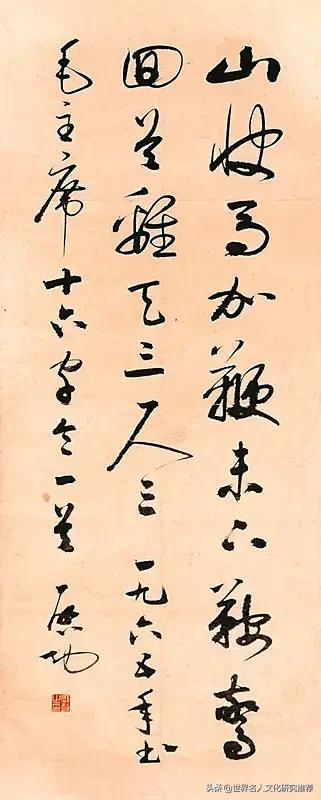 山快馬加鞭未下鞍驚
回首離天三尺三 一九六五年書
毛主席十六字令一首 啟功
头条 @世界名人文化研究推荐